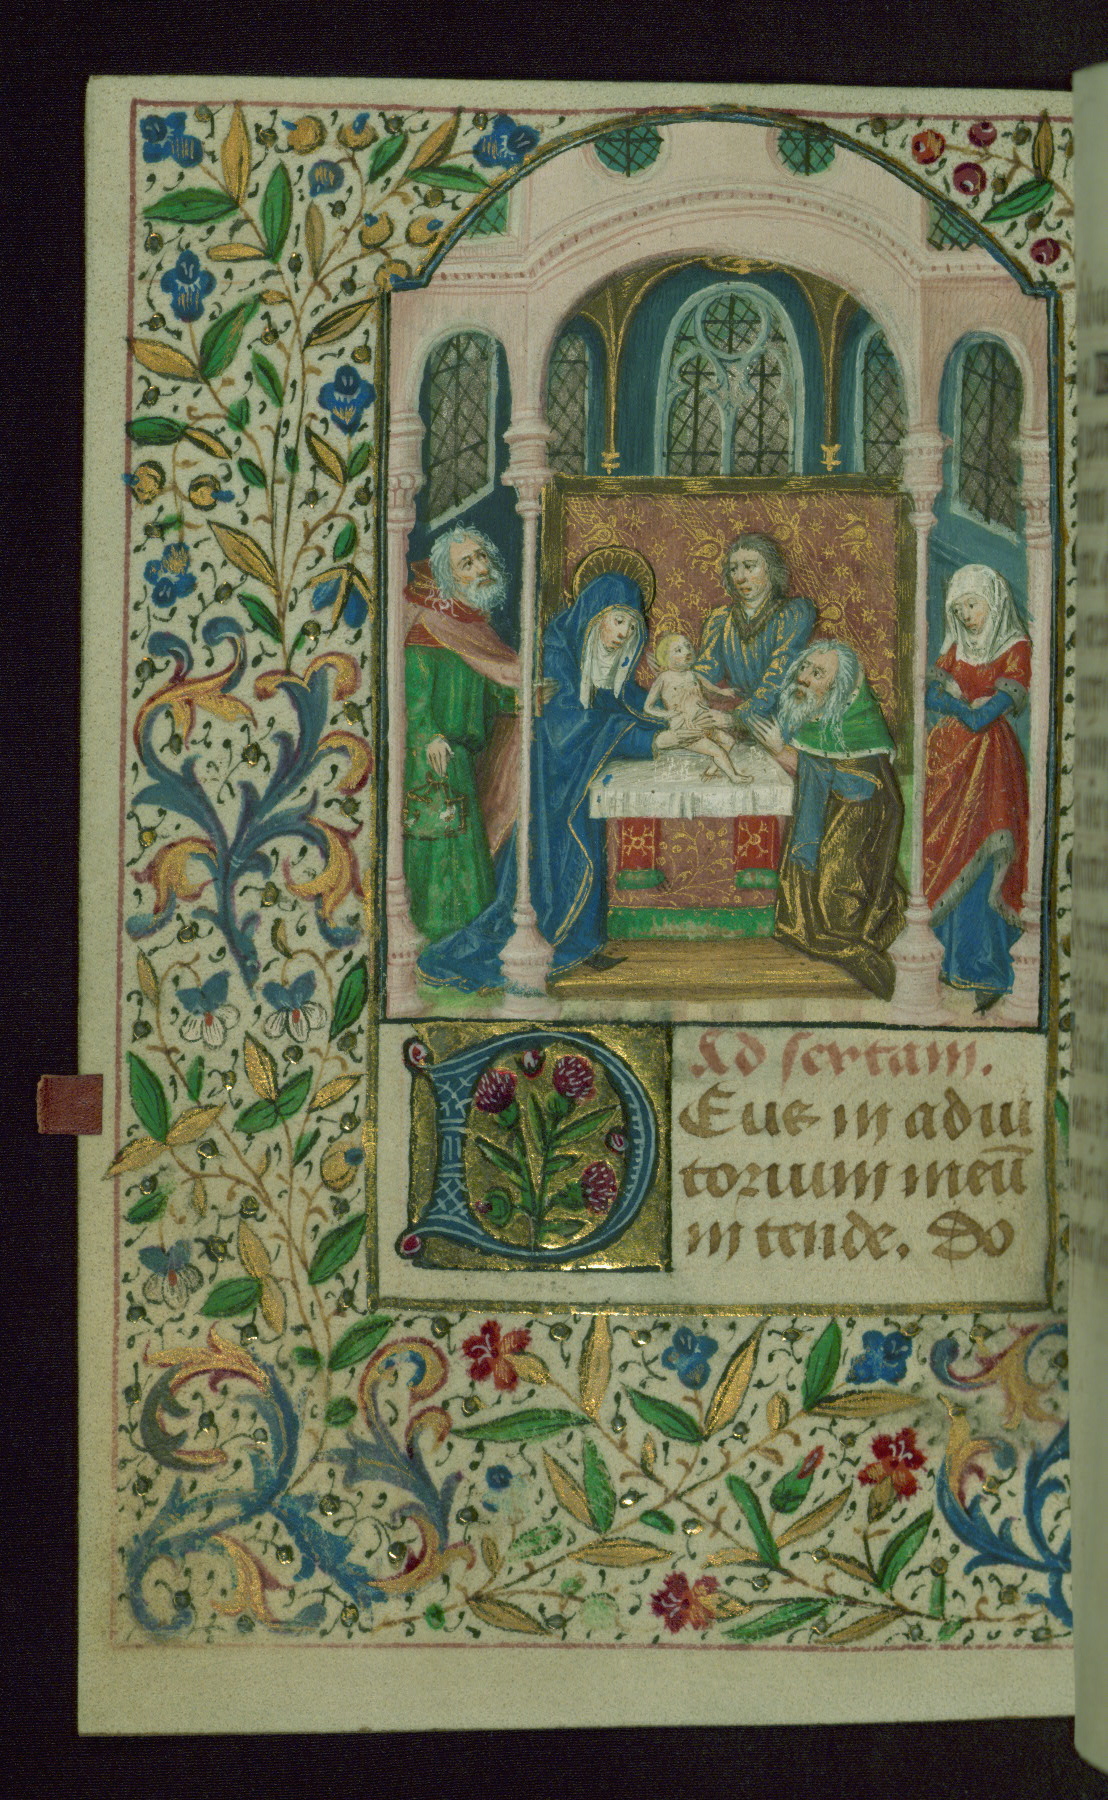 Ad sextam.
Deus in adiu
torium meū
in tende. Do